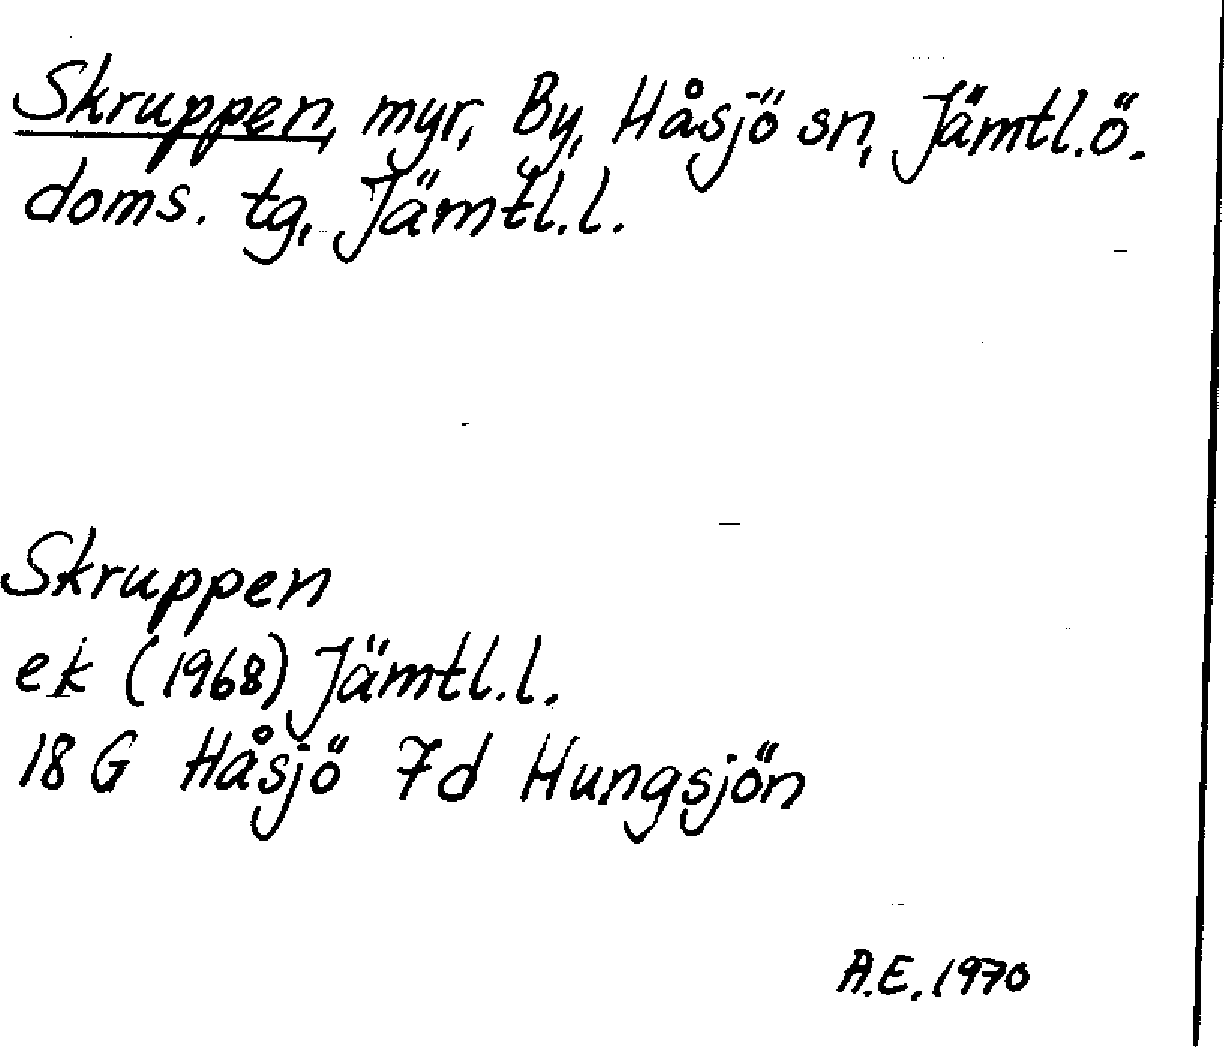 Skruppen, myr, By, Håsjö sn, Jämtl.ö.
doms. tg, Jämtl.l.
Skruppen
ek (1968) Jämtl.l.
18 G Håsjö 7d Hungsjön
A.E. 1970